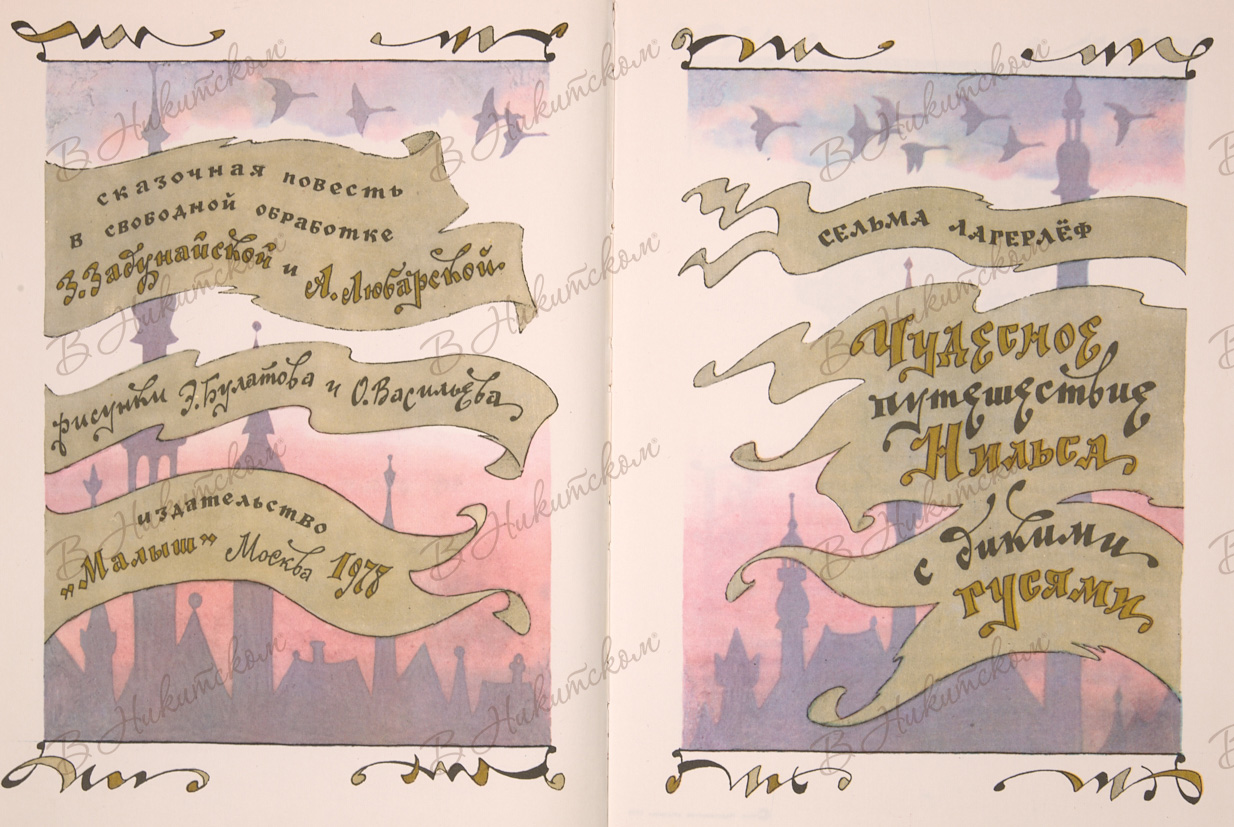 сказочная повесть
в свободной обработке
З. Задунайской и А. Любарской
рисунки Э. Булатова и О. Васильева
издательство
„Малыш” Москва 1978
СЕЛЬМА ЛАГЕРЛЁФ
Чудесное
путешествие
Нильса
с дикими
гусями
В Никитском